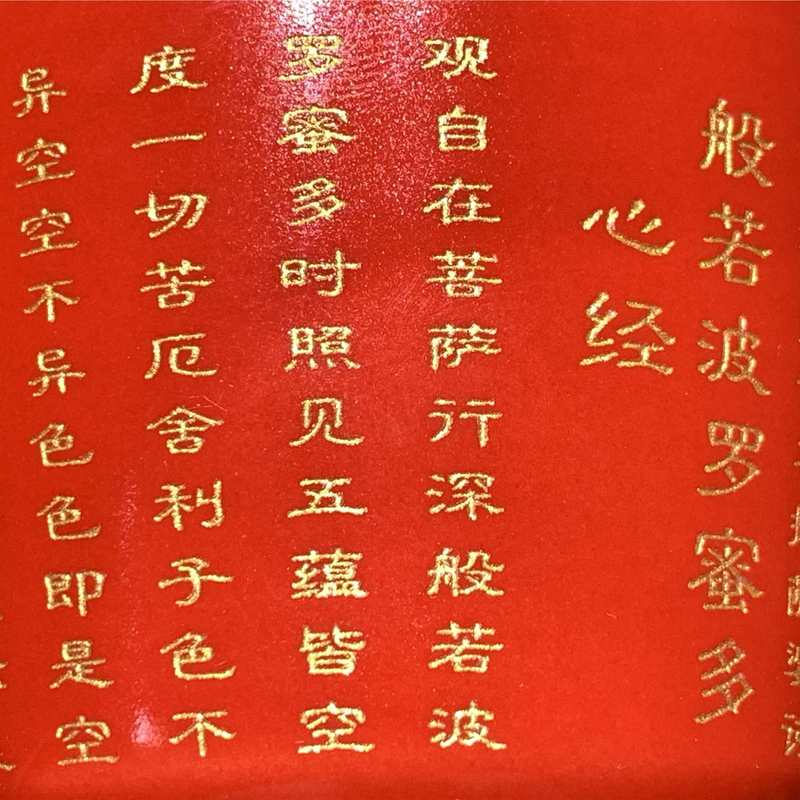 般若波罗蜜多
心经
观自在菩萨行深般若波
罗蜜多时照见五蕴皆空
度一切苦厄舍利子色不
异空空不异色色即是空